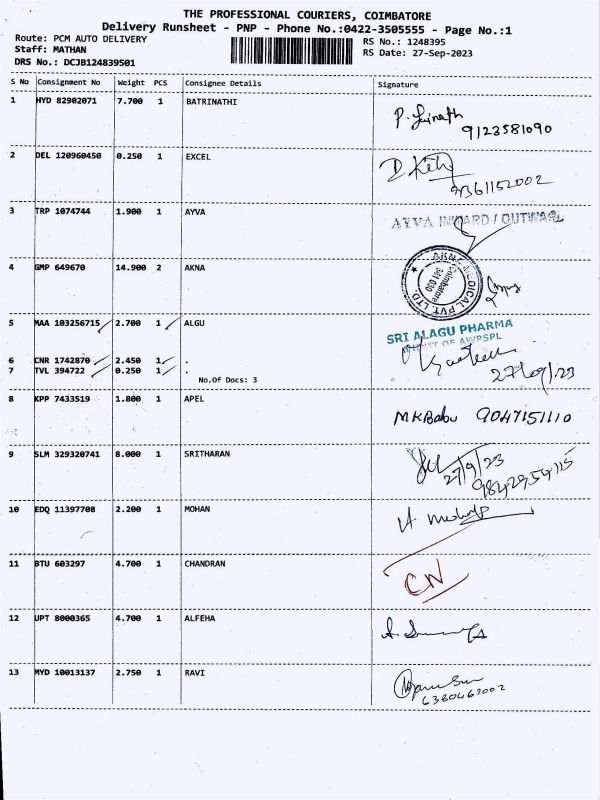 THE PROFESSIONAL COURIERS, COIMBATORE
Delivery Runsheet - PNP - Phone No.:0422-3505555 - Page No.:1
Route: PCM AUTO DELIVERY
Staff: MATHAN
DRS No.: DCJB124839501
RS No.: 1248395
RS Date: 27-Sep-2023
S No Consignment No Weight PCS Consignee Details Signature
1 HYD 82902071 7.700 1 BATRINATHI
9123581090
2 DEL 120960450 0.250 1 EXCEL
9361152002
3 TRP 1074744 1.900 1 AYVA
AYVA INWARD / OUTWARD
4 GMP 649670 14.900 2 AKNA
AKNA MEDICAL PVT. LTD.
Coimbatore
641 030
5 MAA 103256715 2.700 1 ALGU
SRI ALAGU PHARMA
UNIT OF AWPSPL
6 CNR 1742870 2.450 1 .
7 TVL 394722 0.250 1 .
27/09/23
No.Of Docs: 3
8 KPP 7433519 1.800 1 APEL
MKBabu 9047151110
9 SLM 329320741 8.000 1 SRITHARAN
27/9/23
9842954115
10 EDQ 11397708 2.200 1 MOHAN
11 BTU 603297 4.700 1 CHANDRAN
CN
12 UPT 8000365 4.700 1 ALFEHA
13 MYD 10013137 2.750 1 RAVI
6380467002